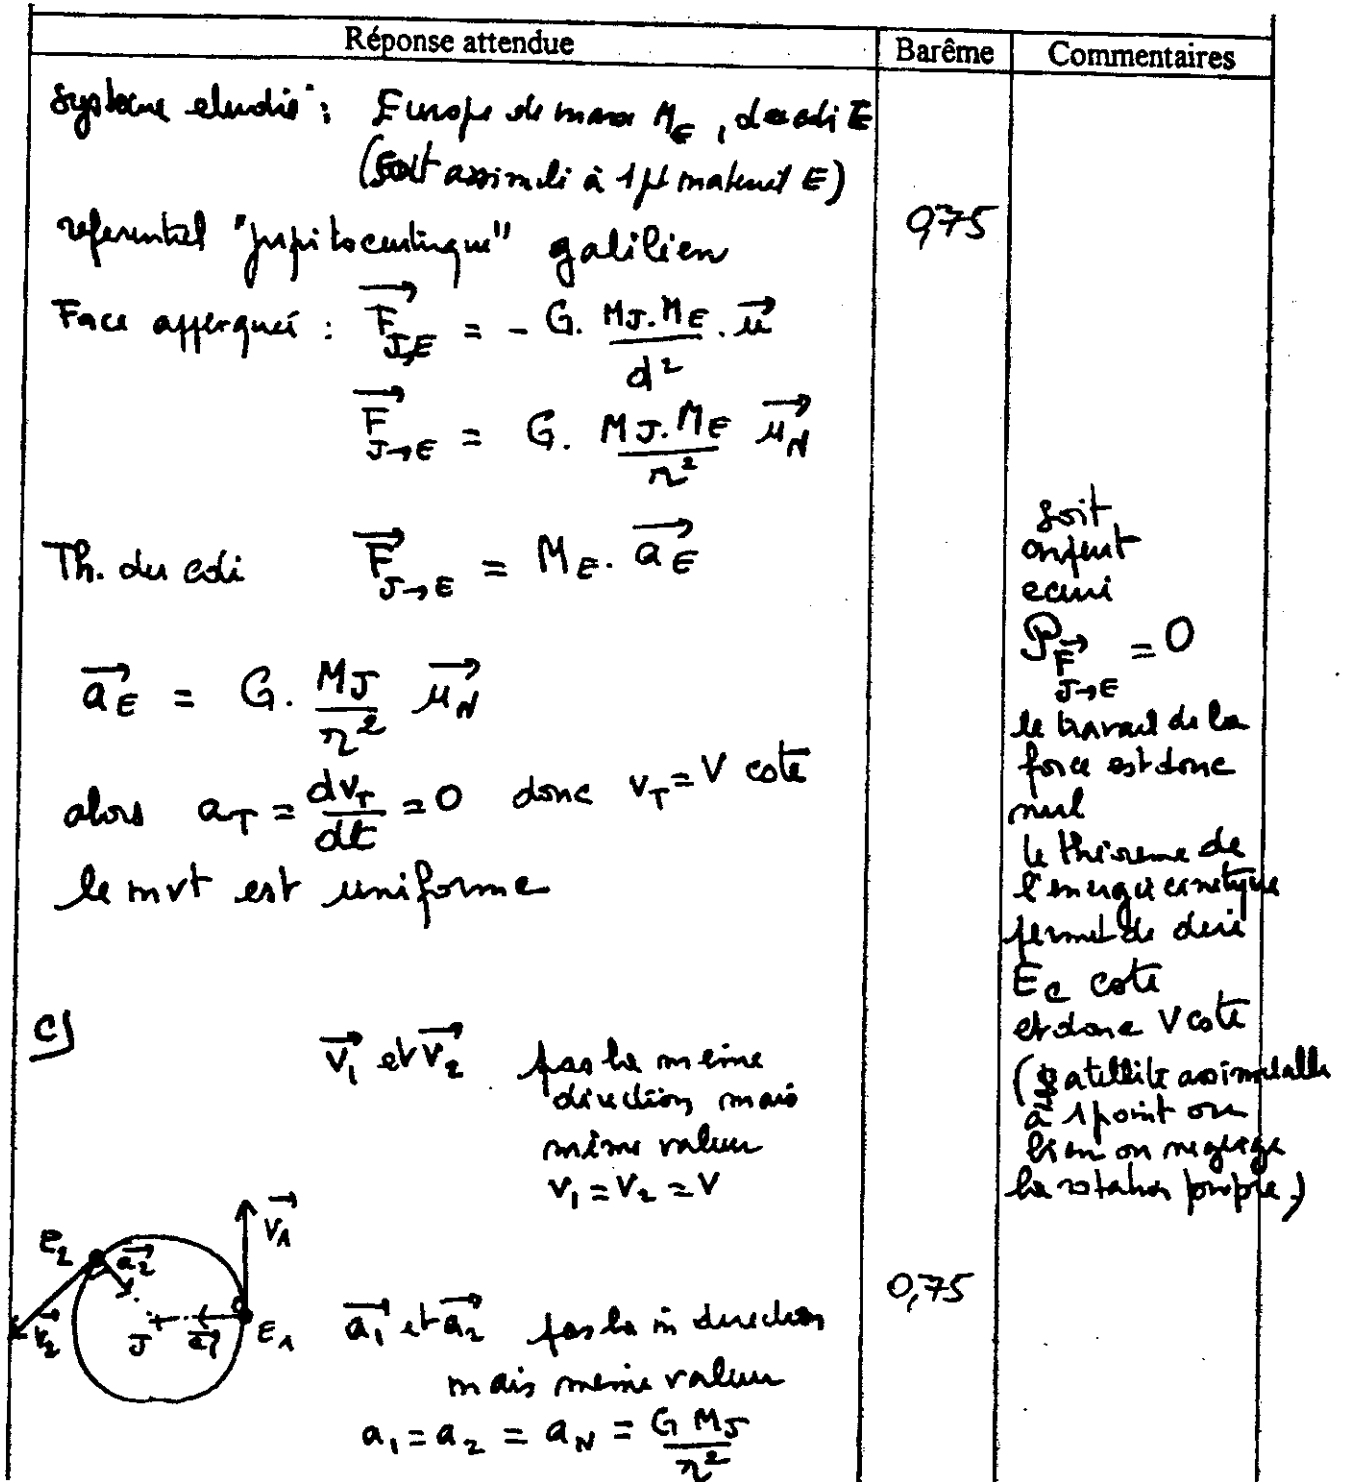 Réponse attendue
Barême
Commentaires
Système etudié : Europe de masse M_E, de cdi E
(soit assimilé à 1 pt materiel E)
referentiel "jupitocentrique" galiléen
0,75
Force appliquée : F⃗_{J,E} = - G. M_J.M_E / d² . u⃗
F⃗_{J→E} = G. M_J.M_E / r² u⃗_N
Th. du cdi F⃗_{J→E} = M_E. a⃗_E
a⃗_E = G. M_J / r² u⃗_N
alors a_T = dv_T / dt = 0 donc v_T = V cote
le mvt est uniforme
soit
on peut
ecrire
P_{F⃗ J→E} = 0
le travail de la
force est donc
nul
le théoreme de
l'energie cinetique
permet de dire
E_c cote
et donc V cote
(satellite assimilable
à 1 point ou
bien on neglige
la rotation propre.)
c)
v⃗_1 et v⃗_2 pas la meine
direction mais
même valeur
v_1 = v_2 = V
E_2 a⃗_2 v⃗_1
v⃗_2 J a⃗_1 E_1
0,75
a⃗_1 et a⃗_2 pas la m direction
mais meme valeur
a_1 = a_2 = a_N = G M_J / r²